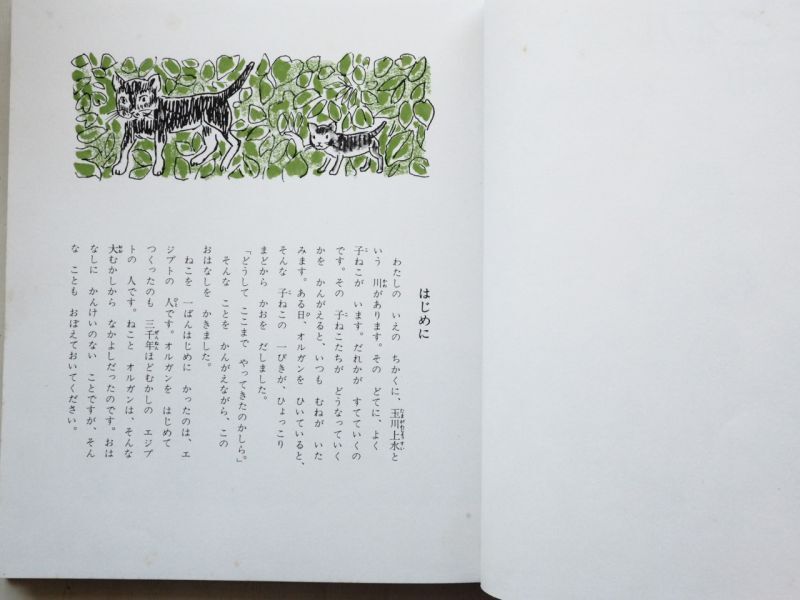 はじめに
わたしの いえの ちかくに、玉川上水と
いう 川があります。その どてに、よく
子ねこが います。だれかが すてていくの
です。その 子ねこたちが どうなっていく
かを かんがえると、いつも むねが いた
みます。ある日、オルガンを ひいていると、
そんな 子ねこの 一ぴきが、ひょっこり
まどから かおを だしました。
「どうして ここまで やってきたのかしら。」
そんな ことを かんがえながら、この
おはなしを かきました。
ねこを 一ばんはじめに かったのは、エ
ジプトの 人です。オルガンを はじめて
つくったのも 三千年ほどむかしの エジプ
トの 人です。ねこと オルガンは、そんな
大むかしから なかよしだったのです。おは
なしに かんけいのない ことですが、そん
な ことも おぼえておいてください。